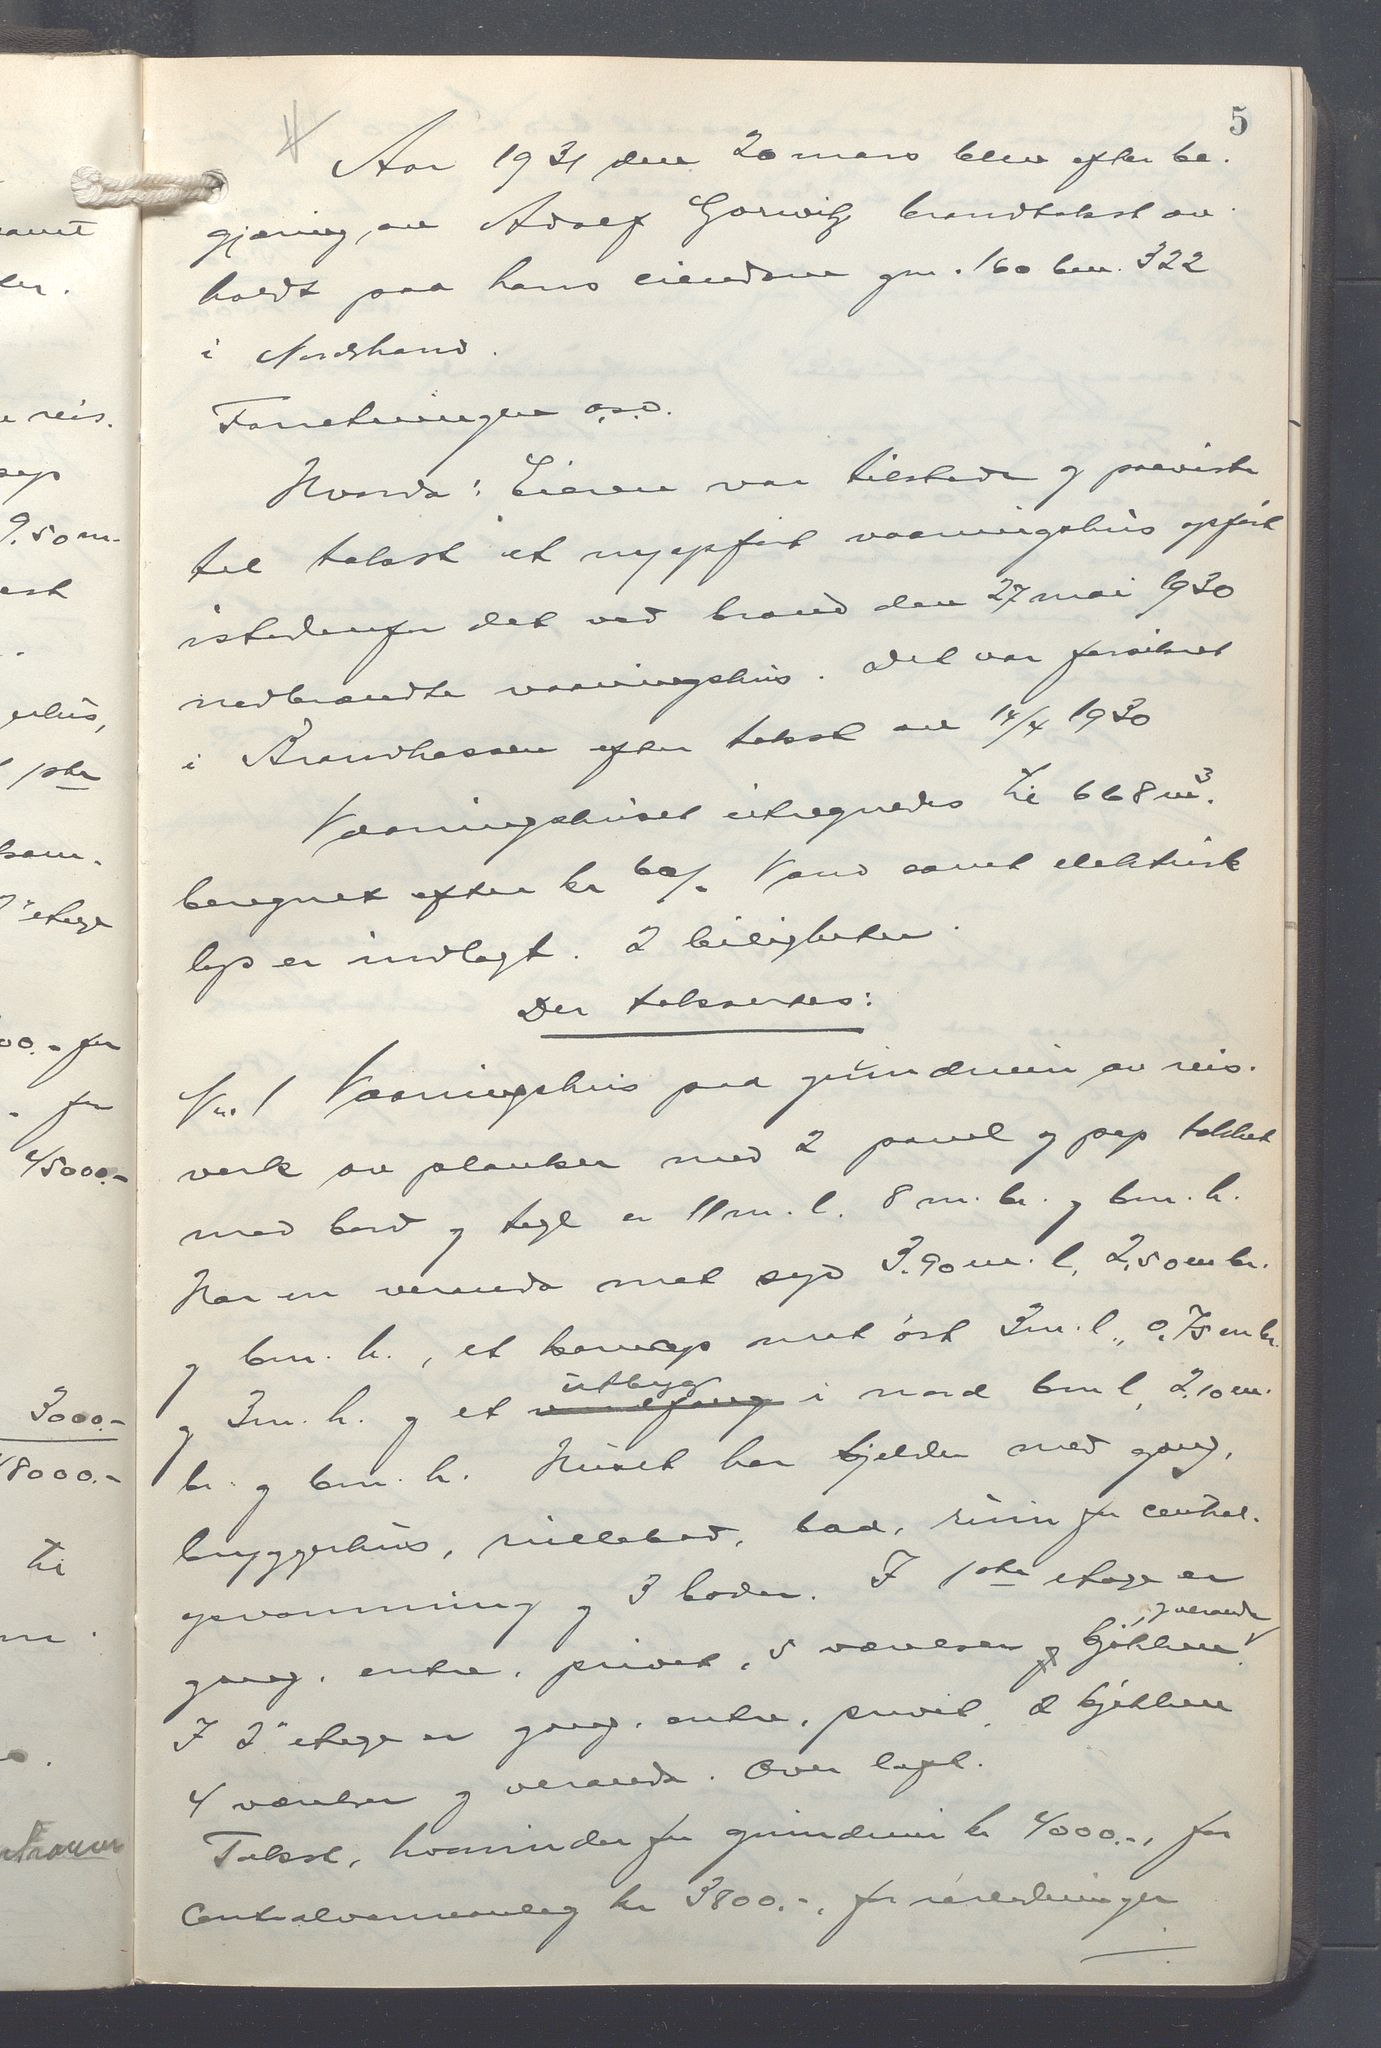 5
Aar 1931 den 20 mars blev efter be-
gjæring av Adolf Gorwitz brandtakst av-
holdt paa hans eiendom gnr. 160 bnr. 322
i Nordstrand.
Forretningen o.s.v.
Hvorda: Eieren var tilstede og paaviste
til takst et nyopført vaaningshus opført
istedenfor det ved brand den 27 mai 1930
nedbrændte vaaningshus. Det var forsikret
i Brandkassen efter takst av 14/4 1930
Vaaningshuset utregnedes til 668 m³.
beregnet efter kr 60/. Vand samt elektrisk
lys er indlagt. 2 leiligheter.
Der takseertes:
Nr. 1 Vaaningshus paa grundmur av reis-
verk av planker med 2 panel og pap tækket
med bord og tegl er 11 m. l. 8 m. br. og 6 m. h.
Har en veranda mot syd 3.90 m. l. 2.50 m br.
og 6 m. h., et karnap mot øst 3 m. l., 0.75 m br.
og 3 m. h. og et utbyg i nord 6 m l, 2.10 m.
br. og 6 m. h. Huset har kjelder med gang,
bryggerhus, rullebod, bad, rum for central-
opvarmning og 3 boder. I 1ste etage er
gang, entre, privet, 5 værelser, kjøkken og veranda.
I 2" etage er gang, entre, privet, 2 kjøkken
4 værelser og veranda. Over loft.
Takst, hvorunder for grundmur kr 4000.-, for
Centralvarmeanlæg kr 3800.-, for rørledninger
amt
ler.
reis.
pap
9.50 m.
erhus,
1ste
etage
00.- for
- for
45000.-
3000.-
48000.-
til